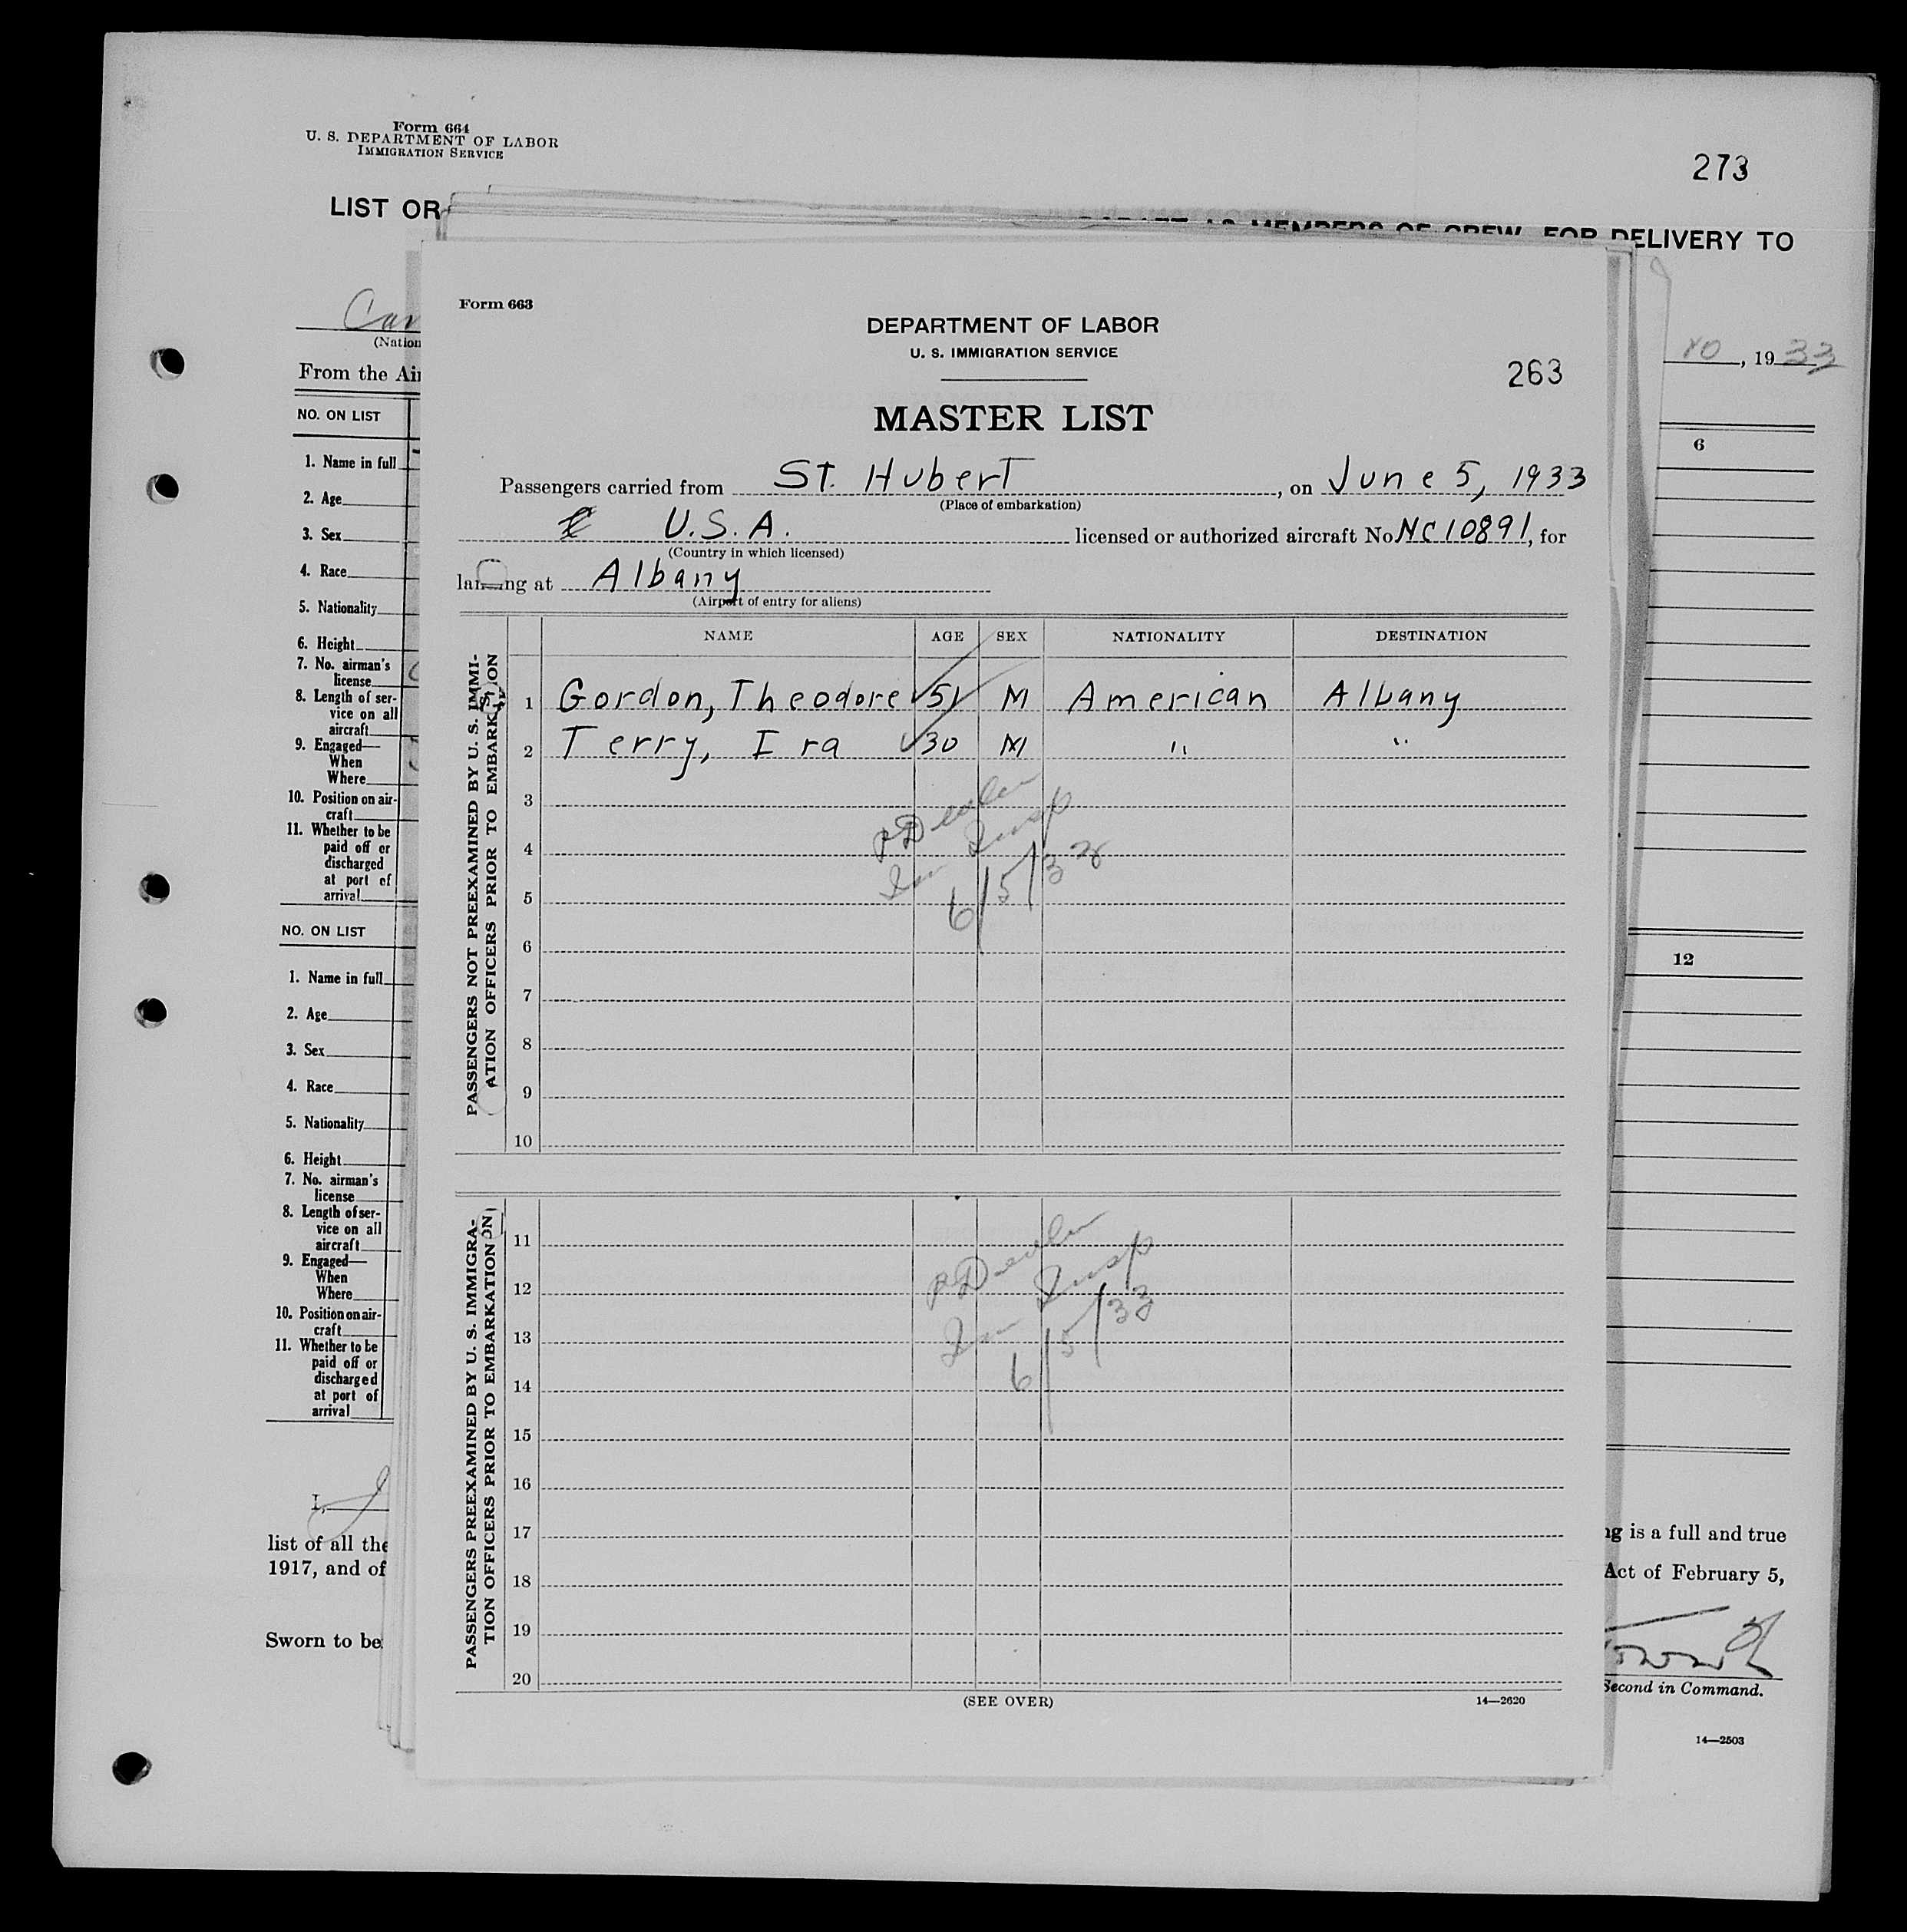 Form 664
U. S. DEPARTMENT OF LABOR
IMMIGRATION SERVICE
273
LIST OR
AS MEMBERS OF CREW, FOR DELIVERY TO
(Nation
From the Air
10, 1933
NO. ON LIST
6
1. Name in full
2. Age
3. Sex
4. Race
5. Nationality
6. Height
7. No. airman's
license
8. Length of ser-
vice on all
aircraft
9. Engaged—
When
Where
10. Position on air-
craft
11. Whether to be
paid off or
discharged
at port of
arrival
NO. ON LIST
12
1. Name in full
2. Age
3. Sex
4. Race
5. Nationality
6. Height
7. No. airman's
license
8. Length of ser-
vice on all
aircraft
9. Engaged—
When
Where
10. Position on air-
craft
11. Whether to be
paid off or
discharged
at port of
arrival
I,
list of all the
1917, and of
Sworn to be
ng is a full and true
Act of February 5,
Second in Command.
14—2503
Form 663
DEPARTMENT OF LABOR
U. S. IMMIGRATION SERVICE
263
MASTER LIST
Passengers carried from St. Hubert, on June 5, 1933
(Place of embarkation)
U.S.A. licensed or authorized aircraft No. NC10891, for
(Country in which licensed)
landing at Albany
(Airport of entry for aliens)
NAME AGE SEX NATIONALITY DESTINATION
PASSENGERS NOT PREEXAMINED BY U. S. IMMI-
ATION OFFICERS PRIOR TO EMBARKATION
1 Gordon, Theodore 51 M American Albany
2 Terry, Ira 30 M " "
3
4
5
6
7
8
9
10
Insp
6/5/33
PASSENGERS PREEXAMINED BY U. S. IMMIGRA-
TION OFFICERS PRIOR TO EMBARKATION
11
12
13
14
15
16
17
18
19
20
Insp
6/5/33
(SEE OVER)
14—2620